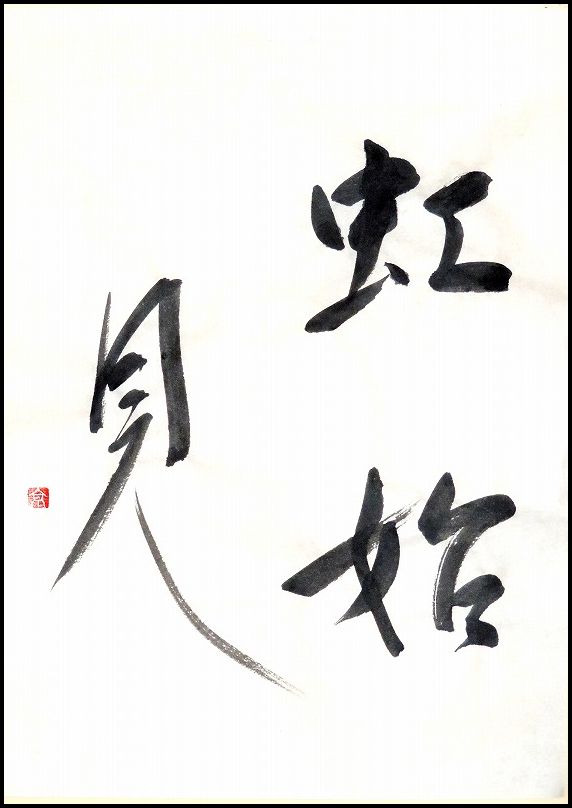 虹始
見